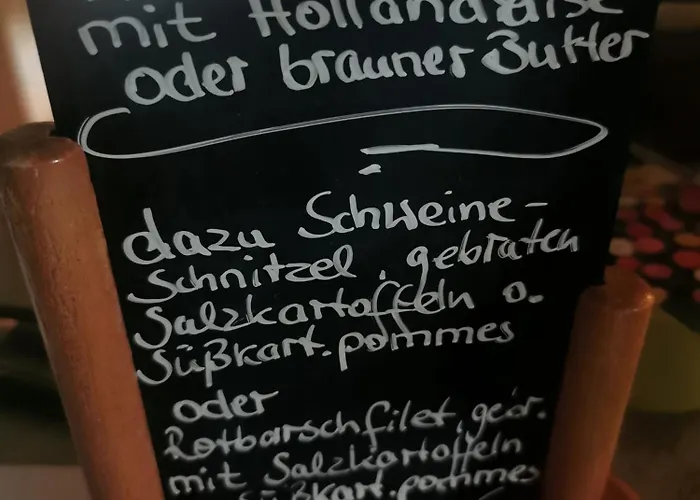 mit Hollandaise
oder brauner Butter
dazu Schweine-
Schnitzel, gebraten
Salzkartoffeln o.
Süßkart.pommes
oder
Rotbarschfilet, geör.
mit Salzkartoffeln
Süßkart.pommes